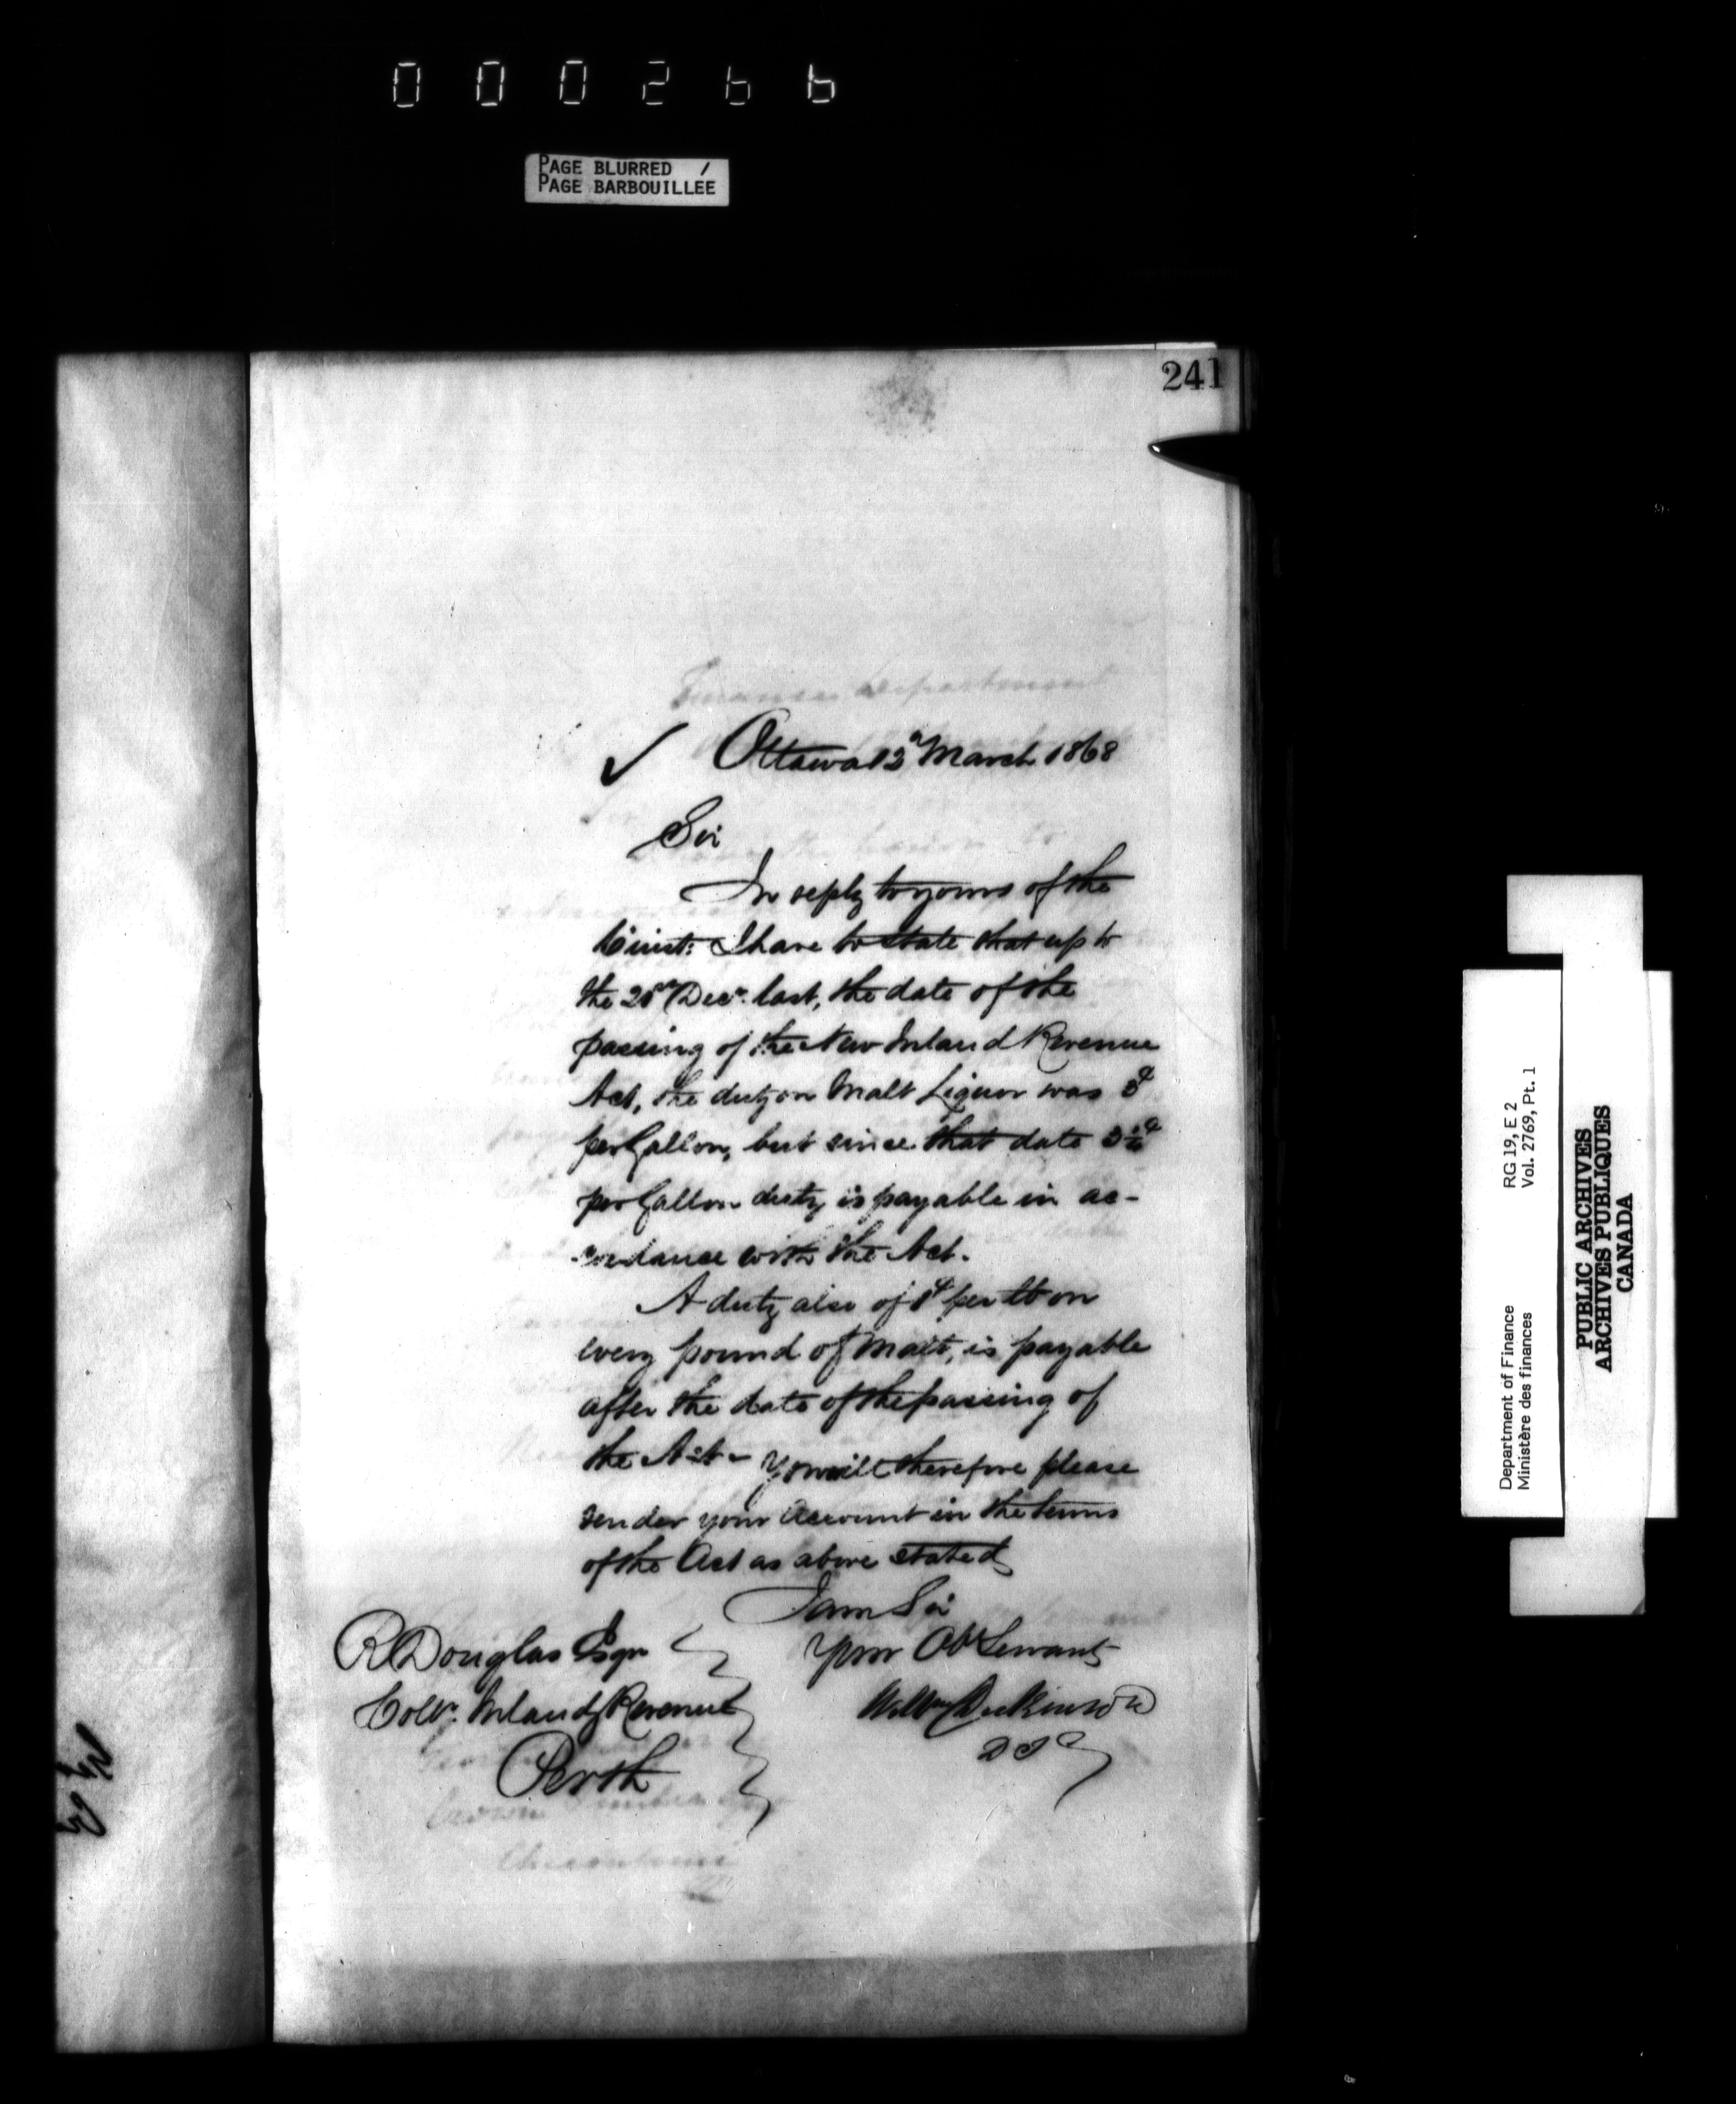 000266
PAGE BLURRED /
PAGE BARBOUILLEE
241
Finance Department
Ottawa 12th March 1868
Sir
In reply to yours of the
inst: I have to state that up to
the 21st Decr. last, the date of the
passing of the New Inland Revenue
Act, the duty on Malt Liquor was 3¢
per Gallon, but since that date 3½¢
per Gallon duty is payable in ac-
cordance with the Act.
A duty also of 1¢ per lb on
every pound of Malt, is payable
after the date of the passing of
the Act - You will therefore please
render your Account in the terms
of the Act as above stated
I am Sir
Your Obt Servant
R Douglas Esqr
Collr. Inland Revenue
Perth
Wm Dickinson
Department of Finance RG 19, E 2
Ministère des finances Vol. 2769, Pt. 1
PUBLIC ARCHIVES
ARCHIVES PUBLIQUES
CANADA